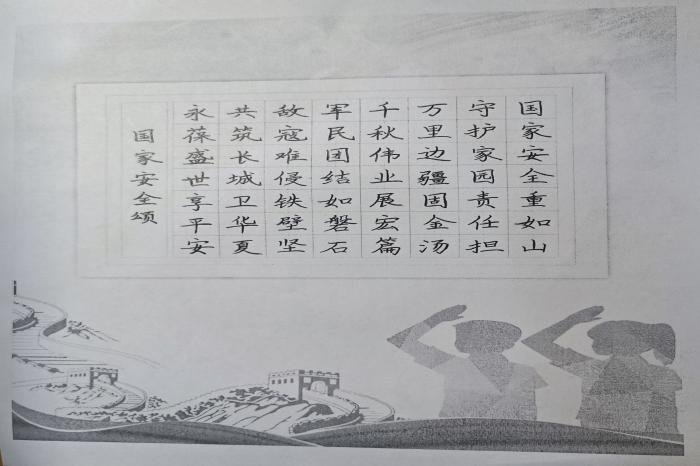 国家安全重如山
守护家园责任担
万里边疆固金汤
千秋伟业展宏篇
军民团结如磐石
敌寇难侵铁壁坚
共筑长城卫华夏
永葆盛世享平安
国家安全颂